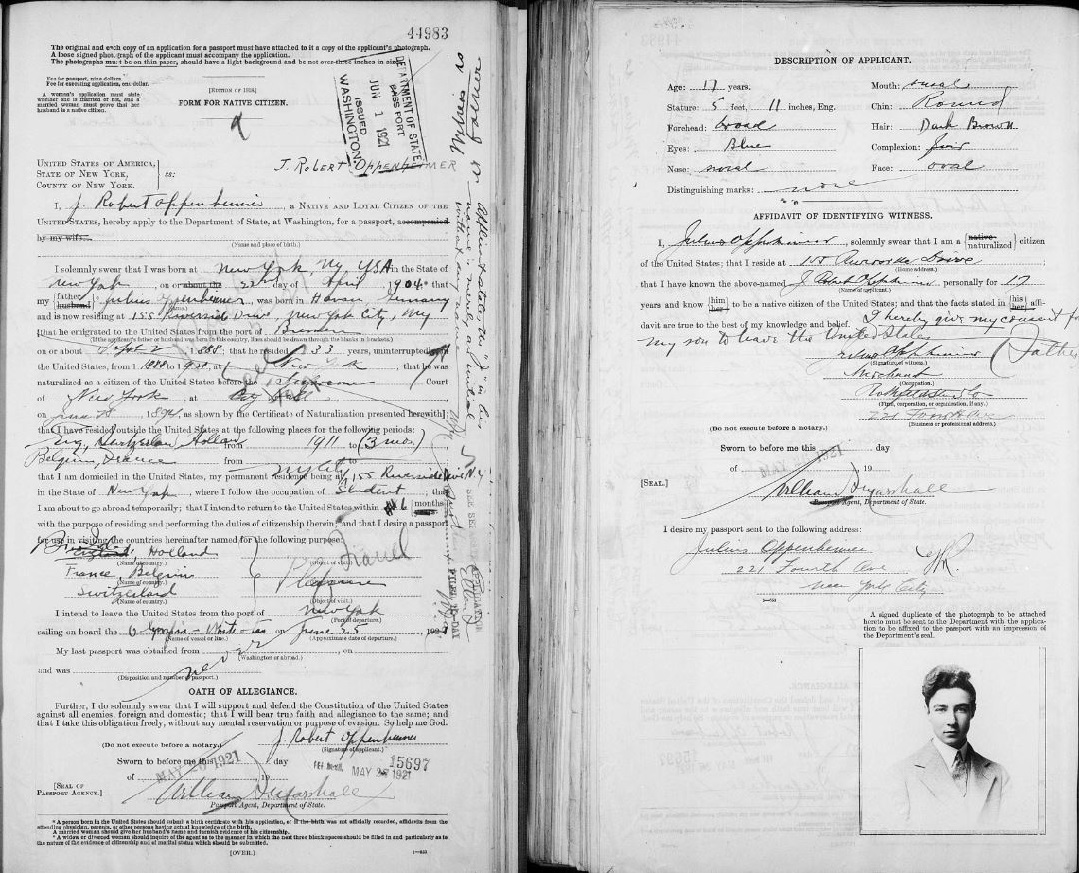 44983
The original and each copy of an application for a passport must have attached to it a copy of the applicant's photograph.
A loose signed photograph of the applicant must accompany the application.
The photographs must be on thin paper, should have a light background and be not over three inches in size.
Fee for passport, nine dollars.
Fee for executing application, one dollar.
A woman's application must state whether she is married or not, and a married woman must prove that her husband is a native citizen.
[EDITION OF 1918]
FORM FOR NATIVE CITIZEN.
DEPARTMENT OF STATE
PASSPORT
ISSUED
JUN 1 1921
WASHINGTON
UNITED STATES OF AMERICA,
STATE OF NEW YORK, ss:
COUNTY OF NEW YORK.
J. ROBERT OPPENHEIMER
I, J. Robert Oppenheimer, A NATIVE AND LOYAL CITIZEN OF THE
UNITED STATES, hereby apply to the Department of State, at Washington, for a passport, accompanied
by my wife
(Name and place of birth.)
I solemnly swear that I was born at New York, NY, USA in the State of
New York, on or about the 22nd day of April 1904 that
my {father husband} Julius Oppenheimer, was born in Hanau, Germany
and is now residing at 155 Riverside Drive, New York City, NY
that he emigrated to the United States from the port of Bremen
(If the applicant's father or husband was born in this country, lines should be drawn through the blanks in brackets.)
on or about Sept 2 1888; that he resided 33 years, uninterruptedly
the United States, from 1888 to 1921, at New York, that he was
naturalized as a citizen of the United States before the Court
of New York, at City Hall
on 1894, as shown by the Certificate of Naturalization presented herewith
that I have resided outside the United States at the following places for the following periods:
Holland from 1911 to (3 mos.)
Belgium, France from to
that I am domiciled in the United States, my permanent residence being at NY City 155 Riverside Drive, N.Y.
in the State of New York, where I follow the occupation of Student, that
I am about to go abroad temporarily; that I intend to return to the United States within 6 months
with the purpose of residing and performing the duties of citizenship therein; and that I desire a passport
for use in visiting the countries hereinafter named for the following purpose:
England, Holland Travel
(Name of country.)
France, Belgium Pleasure
(Name of country.) (Object of visit.)
Switzerland
(Name of country.)
I intend to leave the United States from the port of New York
(Port of departure.)
sailing on board the Olympic - White Star on June 25, 1921
(Name of vessel or line.) (Approximate date of departure.)
My last passport was obtained from never, on
(Washington or abroad.)
and was
(Disposition and number of passport.)
OATH OF ALLEGIANCE.
Further, I do solemnly swear that I will support and defend the Constitution of the United States
against all enemies, foreign and domestic; that I will bear true faith and allegiance to the same; and
that I take this obligation freely, without any mental reservation or purpose of evasion: So help me God.
J Robert Oppenheimer
(Do not execute before a notary.) (Signature of applicant.)
Sworn to before me this day
of MAY 1921 19
15697
MAY 1921
[SEAL OF PASSPORT AGENCY.]
Passport Agent, Department of State.
* A person born in the United States should submit a birth certificate with his application, or if the birth was not officially recorded, affidavits from the
attending physician, parents, or other persons having actual knowledge of the birth.
A married woman should give her husband's name and furnish evidence of his citizenship.
* A widow or divorced woman should inquire of the agent as to the manner in which the next three blank spaces should be filled in and particularly as to
the nature of the evidence of citizenship and of marital status which should be submitted.
[OVER.]
DESCRIPTION OF APPLICANT.
Age: 17 years. Mouth: usual
Stature: 5 feet, 11 inches, Eng. Chin: Round
Forehead: broad Hair: Dark Brown
Eyes: Blue Complexion: fair
Nose: usual Face: oval
Distinguishing marks: none
AFFIDAVIT OF IDENTIFYING WITNESS.
I, Julius Oppenheimer, solemnly swear that I am a {native naturalized} citizen
of the United States; that I reside at 155 Riverside Drive
(Home address.)
that I have known the above-named J Robert Oppenheimer personally for 17
(Name of applicant.)
years and know {him her} to be a native citizen of the United States; and that the facts stated in {his her} affi-
davit are true to the best of my knowledge and belief. I hereby give my consent for
my son to leave the United States
Julius Oppenheimer (Father
(Signature of witness.)
Merchant
(Occupation.)
Rothfeld Stern & Co
(Firm, corporation, or organization, if any.)
221 Fourth Ave
(Business or professional address.)
(Do not execute before a notary.)
Sworn to before me this day
of 19
[SEAL]
Passport Agent, Department of State.
I desire my passport sent to the following address:
Julius Oppenheimer
221 Fourth Ave
New York City
A signed duplicate of the photograph to be attached
hereto must be sent to the Department with the applica-
tion to be affixed to the passport with an impression of
the Department's seal.